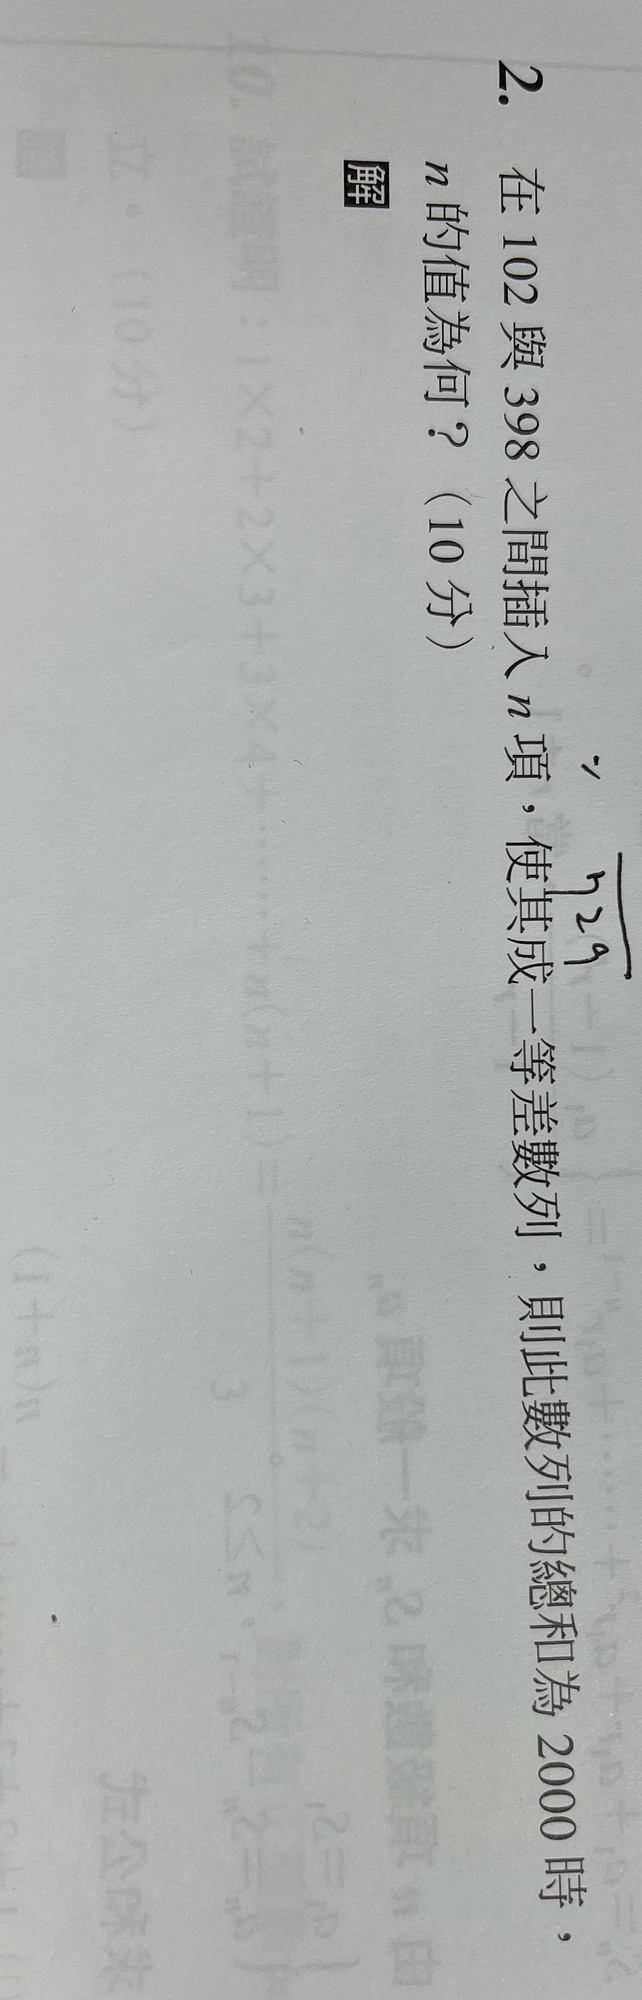 2. 在 102 與 398 之間插入 n 項，使其成一等差數列，則此數列的總和為 2000 時，
n 的值為何？（10 分）
解